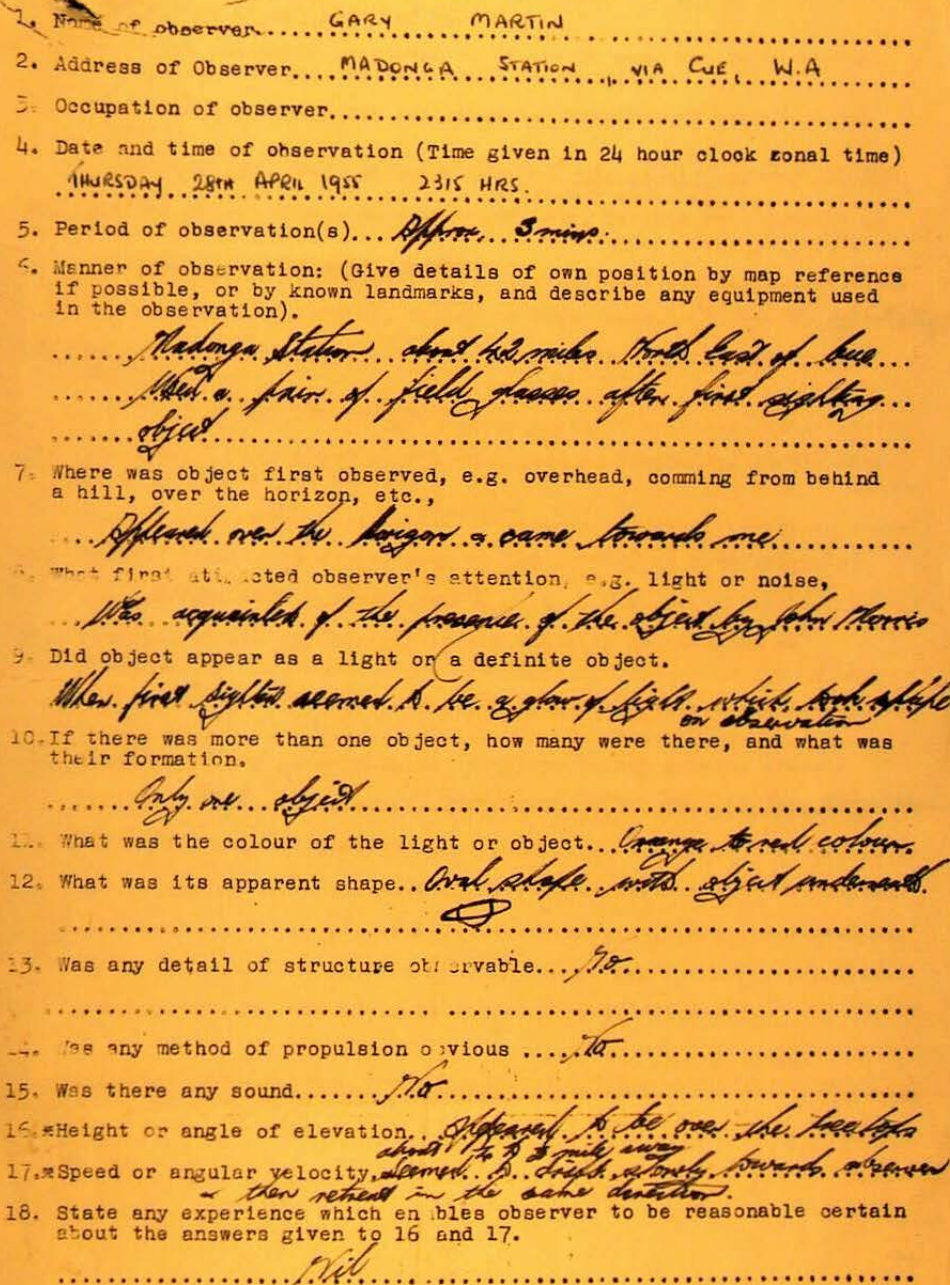 1. Name of observer.... GARY MARTIN
2. Address of Observer.... MADONGA STATION, VIA CUE, W.A
3. Occupation of observer
4. Date and time of observation (Time given in 24 hour clock zonal time)
THURSDAY 28TH APRIL 1955 2315 HRS.
5. Period of observation(s)... Approx. 3 mins.
6. Manner of observation: (Give details of own position by map reference
if possible, or by known landmarks, and describe any equipment used
in the observation).
Madonga Station about 42 miles North East of Cue
Used a pair of field glasses after first sighting
object
7. Where was object first observed, e.g. overhead, comming from behind
a hill, over the horizon, etc.,
Appeared over the horizon & came towards me
8. What first attracted observer's attention, e.g. light or noise,
Was acquainted of the presence of the object by John Morris
9. Did object appear as a light or a definite object.
When first sighted seemed to be a glow of light which took shape
on observation
10. If there was more than one object, how many were there, and what was
their formation.
Only one object
11. What was the colour of the light or object... Orange to red colour.
12. What was its apparent shape.. Oval shape with object underneath.
13. Was any detail of structure observable... No
14. Was any method of propulsion obvious .... No
15. Was there any sound....... No
16.*Height or angle of elevation.. Appeared to be over the treetops
about to mile away
17.*Speed or angular velocity. Seemed to slowly towards observer
& then retreat in the same direction.
18. State any experience which enables observer to be reasonable certain
about the answers given to 16 and 17.
Nil